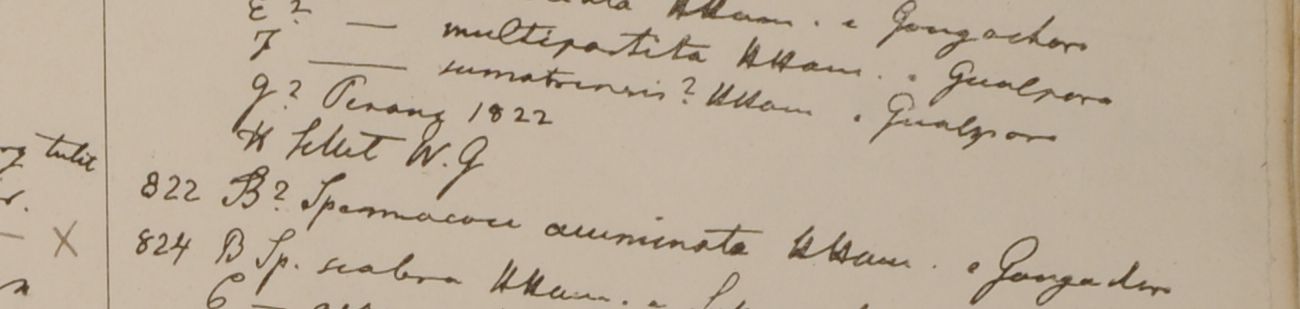 E? HHam. e Gongachora
F — multipartita HHam. e Gualpara
— sumatrensis? HHam e Gualpara
G? Penang 1822
H Sillet W.G
822 B? Spermacoce acuminata HHam. e Gongachora
tulit
824 B Sp. scabra HHam. e
X